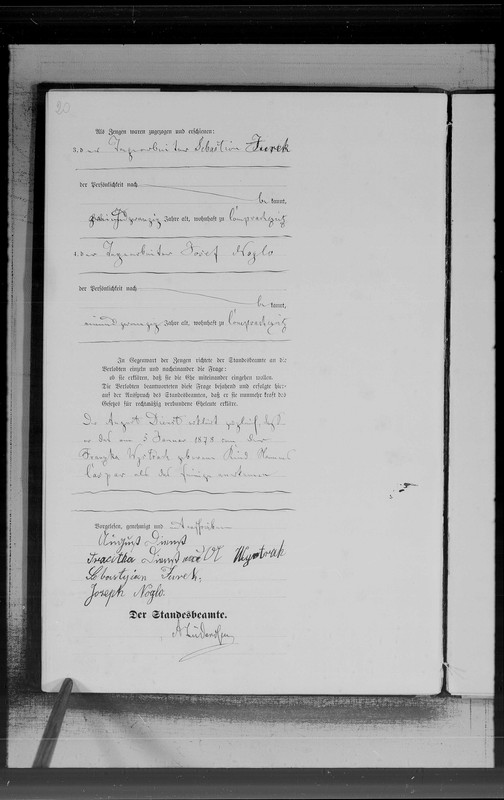 20
Als Zeugen waren zugezogen und erschienen:
3. der Tagearbeiter Sebastian Jurek
der Persönlichkeit nach
be kannt,
Jahre alt, wohnhaft zu Comprachczütz
4. der Tagearbeiter Josef Noglo
der Persönlichkeit nach
be kannt,
einundzwanzig Jahre alt, wohnhaft zu Comprachczütz
In Gegenwart der Zeugen richtete der Standesbeamte an die
Verlobten einzeln und nacheinander die Frage:
ob sie erklären, daß sie die Ehe miteinander eingehen wollen.
Die Verlobten beantworteten diese Frage bejahend und erfolgte hier-
auf der Ausspruch des Standesbeamten, daß er sie nunmehr kraft des
Gesetzes für rechtmäßig verbundene Eheleute erkläre.
Der August Dienst erklärt zugleich, daß
er das am 5 Januar 1878 von der
geborene Kind Namens
Caspar als das seinige anerkenne
Vorgelesen, genehmigt und unterschrieben
August Dienst
Dienst Wystrach
Sebastyian Jurek,
Joseph Noglo.
Der Standesbeamte.